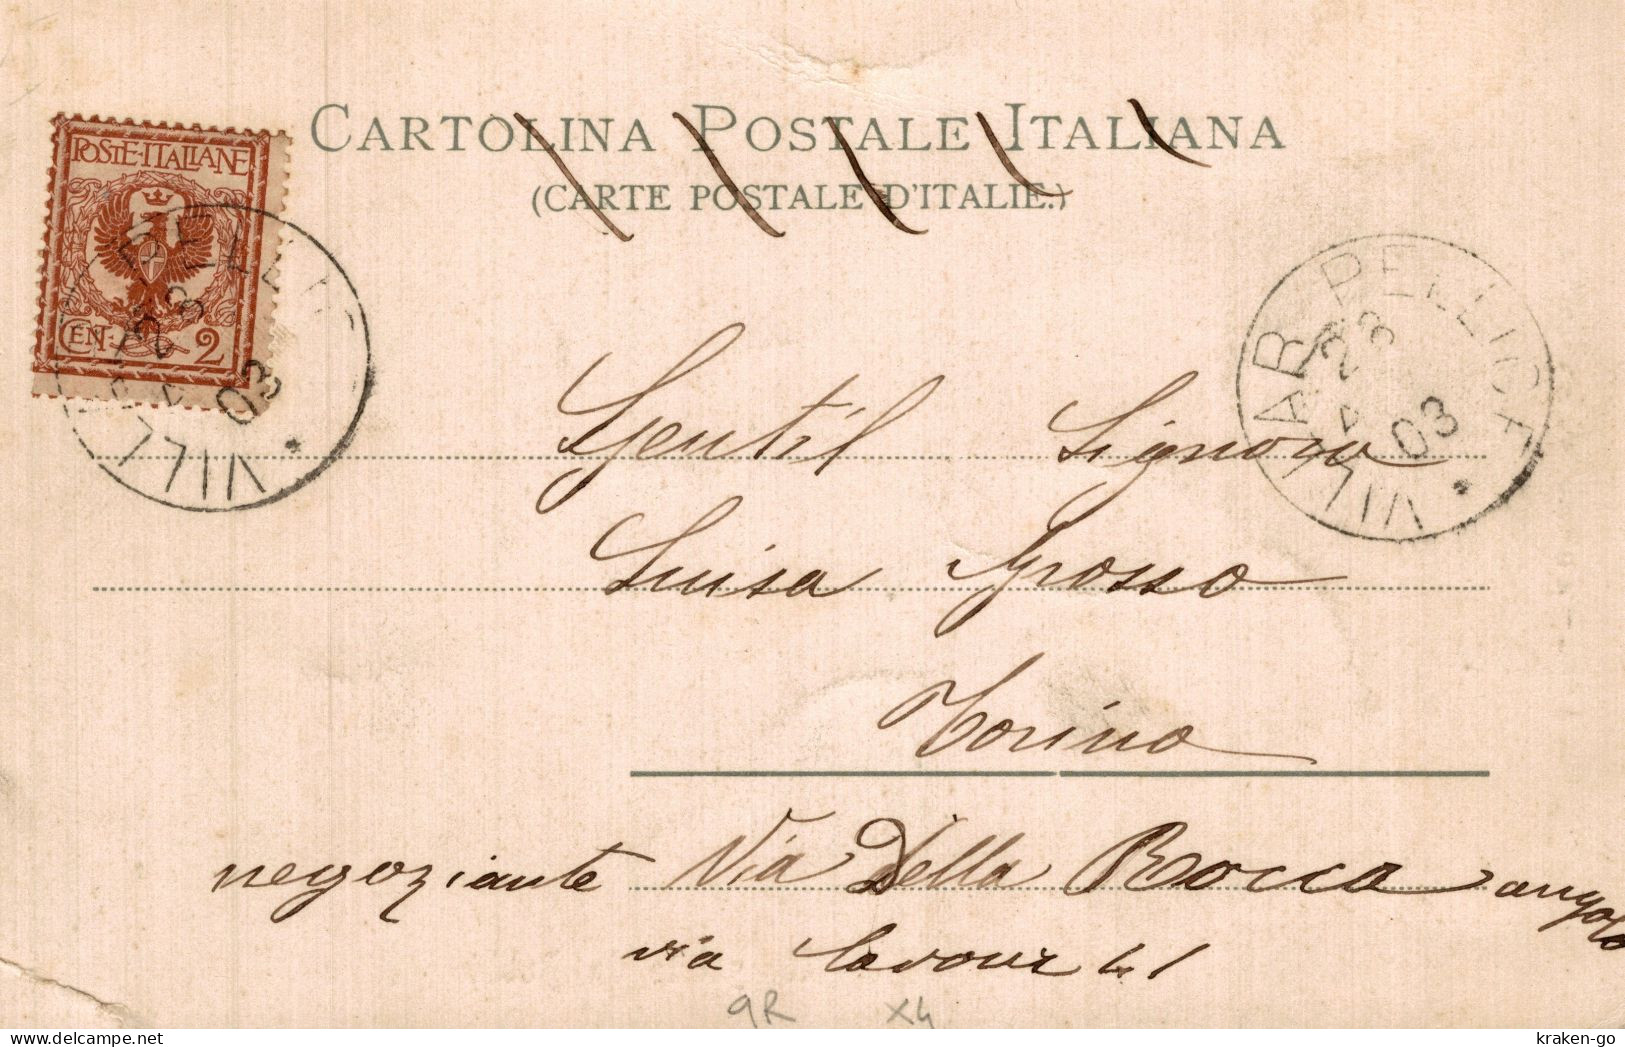 CARTOLINA POSTALE ITALIANA
(CARTE POSTALE D'ITALIE.)
POSTE·ITALIANE
CEN: 2
VILLAR PELLICE
23
4
03
VILLAR PELLICE
23
4
03
Gentil Signora
Luisa Grosso
Torino
negoziante Via Della Rocca angolo
via Cavour 41
9R x4
kraken-go